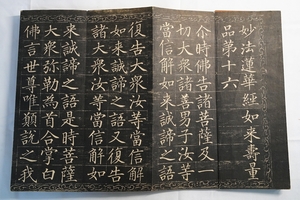 妙法蓮華經如來壽量
品第十六
尒時佛告諸菩薩及一
切大衆諸善男子汝等
當信解如來誠諦之語
復告大衆汝等當信解
如來誠諦之語又復告
諸大衆汝等當信解如
來誠諦之語是時菩薩
大衆弥勒為首合掌白
佛言世尊唯願說之我